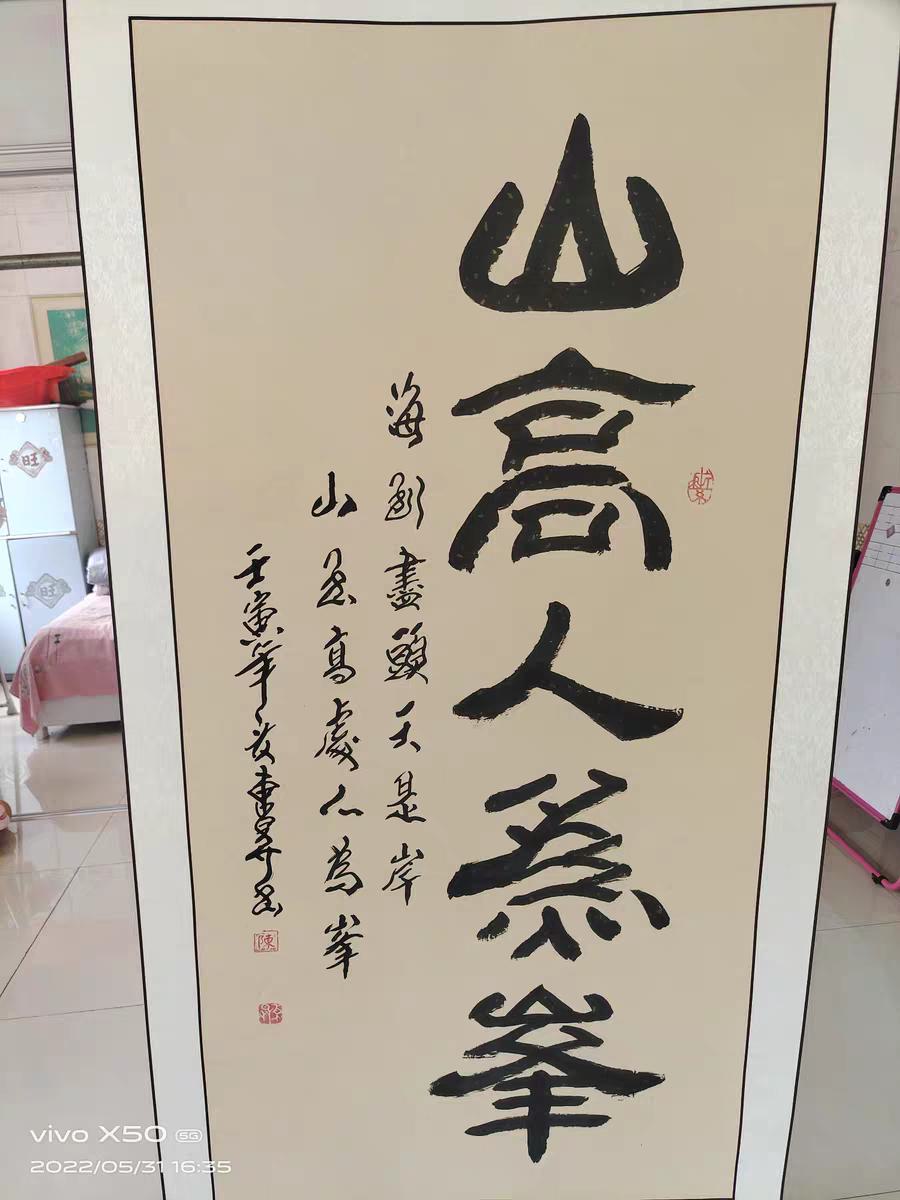 山高人為峯
海到盡頭天是岸
山至高處人為峯
壬寅年
書
陳
旺
旺
vivo X50 5G
2022/05/31 16:35